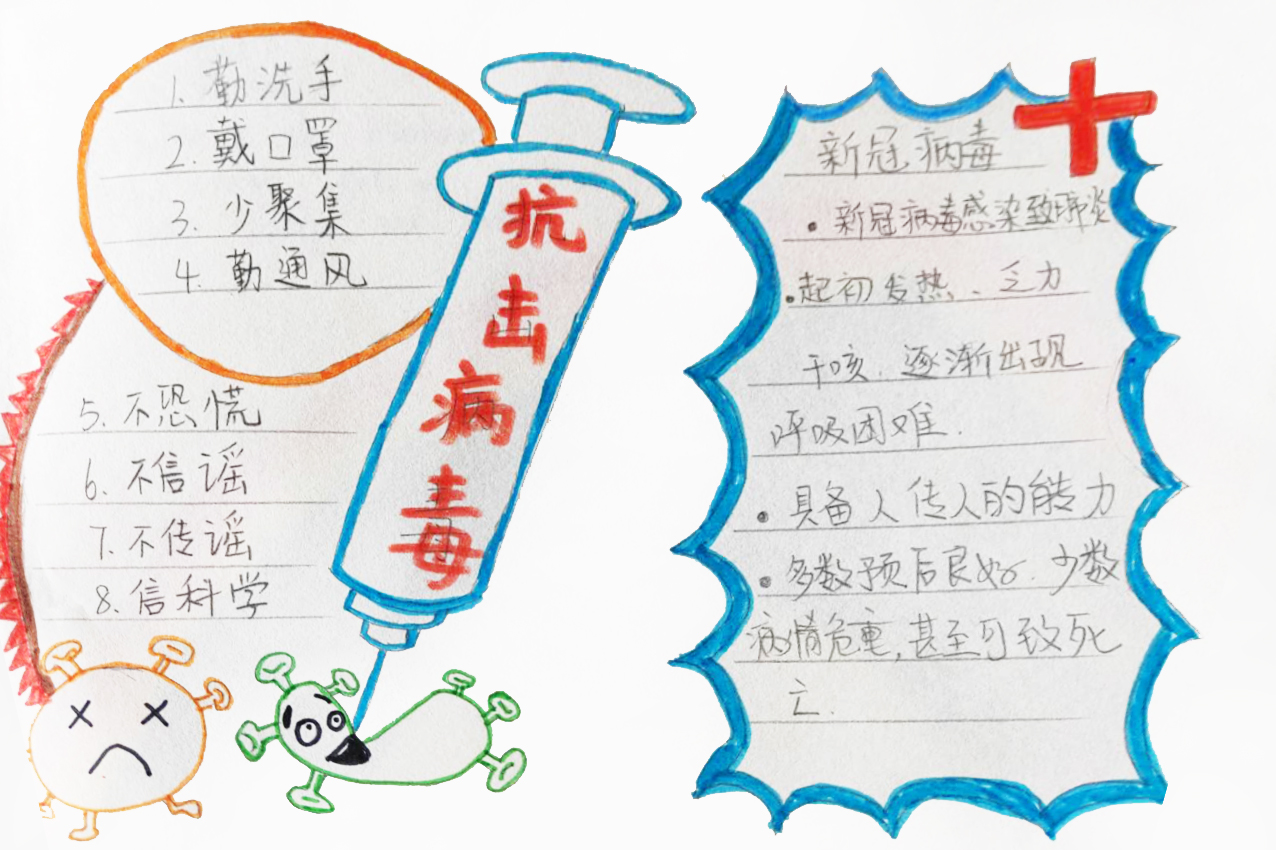 1. 勤洗手
2. 戴口罩
3. 少聚集
4. 勤通风
5. 不恐慌
6. 不信谣
7. 不传谣
8. 信科学
抗击病毒
新冠病毒
• 新冠病毒感染致肺炎
• 起初发热、乏力
干咳.逐渐出现
呼吸困难.
• 具备人传人的能力
• 多数预后良好.少数
病情危重,甚至可致死
亡.